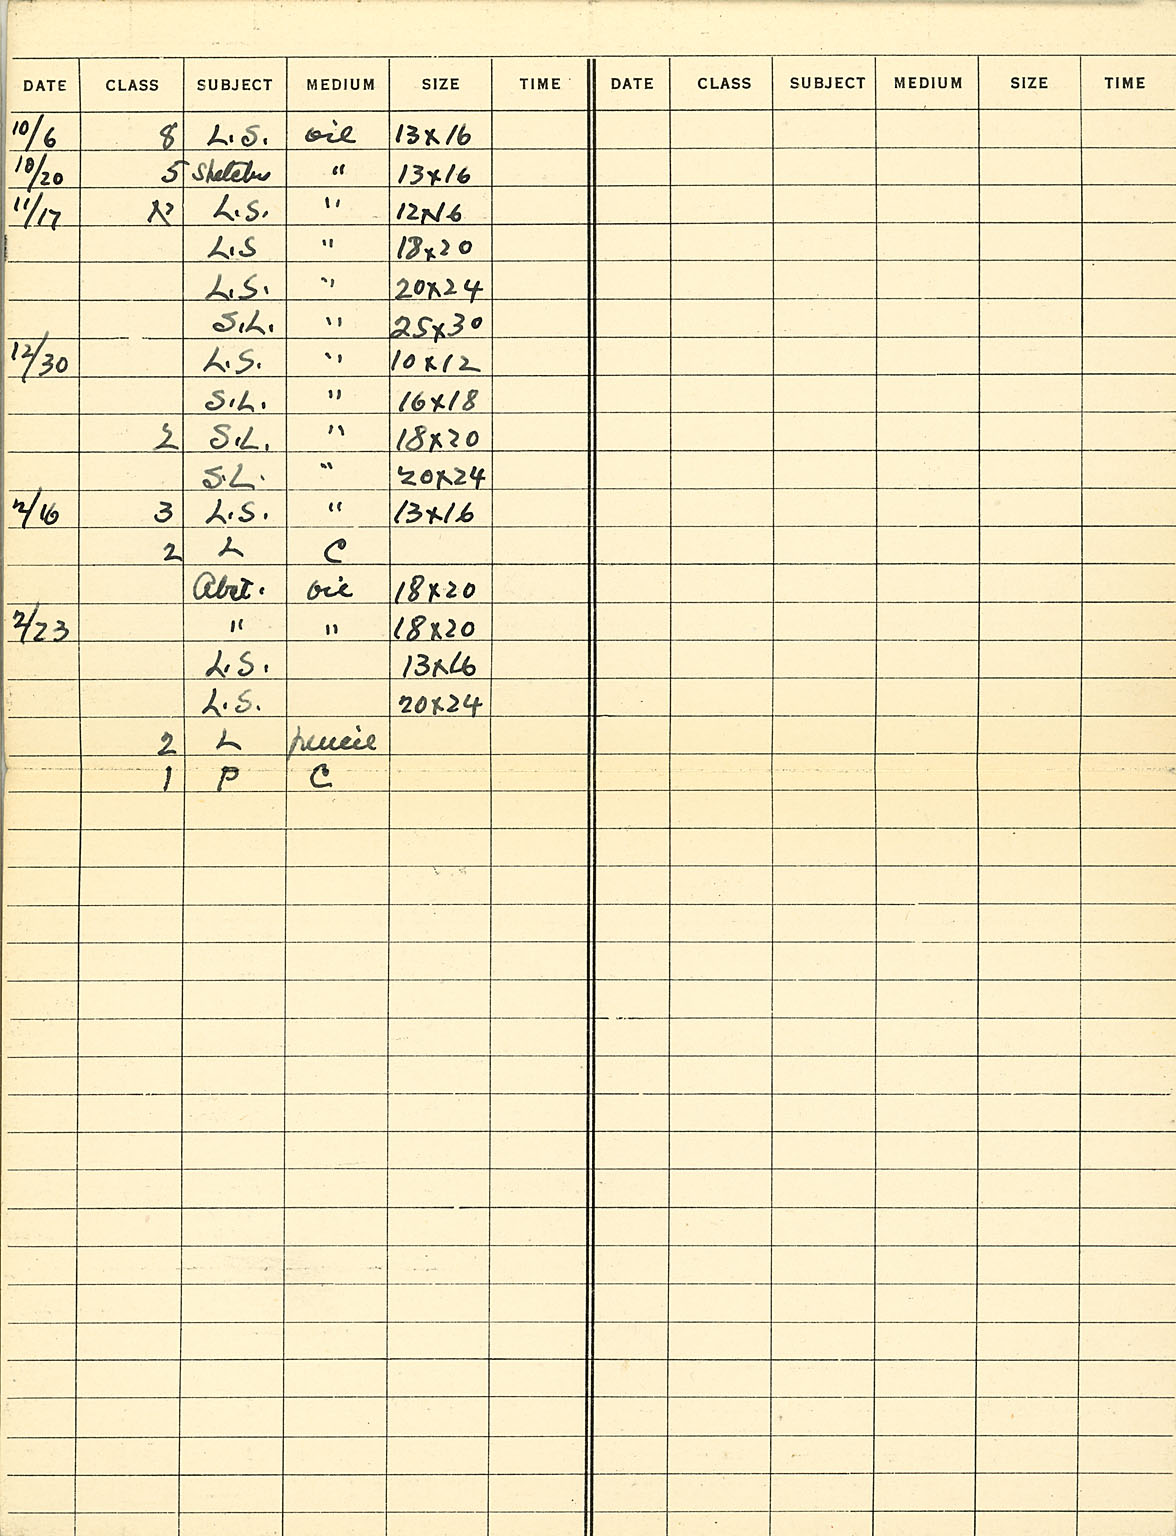 DATE CLASS SUBJECT MEDIUM SIZE TIME DATE CLASS SUBJECT MEDIUM SIZE TIME
10/6 8 L.S. oil 13x16
10/20 5 Sketches " 13x16
11/17 L.S. " 12x16
L.S " 18x20
L.S. " 20x24
S.L. " 25x30
12/30 L.S. " 10x12
S.L. " 16x18
2 S.L. " 18x20
S.L. " 20x24
2/16 3 L.S. " 13x16
2 L C
Abst. oil 18x20
2/23 " " 18x20
L.S. 13x16
L.S. 20x24
2 L pencil
1 P C